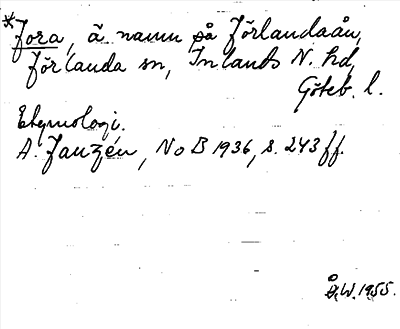 *Fora, ä. namn på Förlandaån,
Förlanda sn, Inlands N. hd,
Göteb. l.
Etymologi.
A. Janzén, NoB 1936, s. 243 ff.
Å.W. 1955.